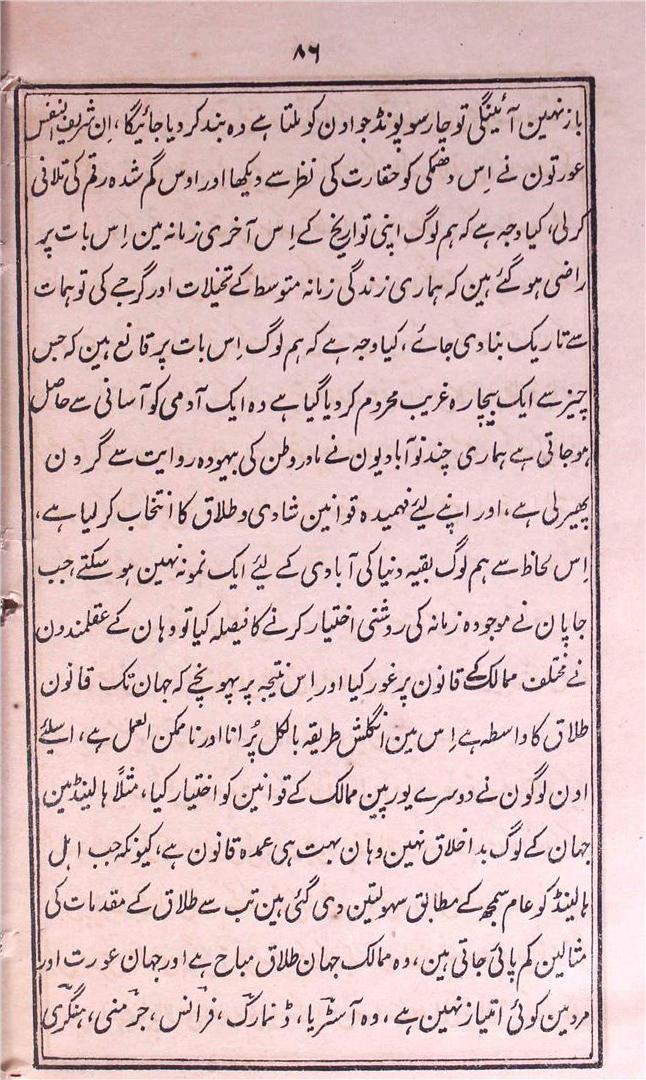 ۸۶
باز نہین آئینگی تو چار سو پونڈ جو اون کو ملتا ہے وہ بند کر دیا جائیگا، اِن شریف النفس
عورتون نے اِس دھمکی کو حقارت کی نظر سے دیکھا اور اوس گم شدہ رقم کی تلافی
کرلی، کیا وجہ ہے کہ ہم لوگ اپنی تواریخ کے اِس آخری زمانہ مین اِس بات پر
راضی ہو گئے ہین کہ ہماری زندگی زمانہ متوسط کے تخیلات اور گرجے کی توہمات
سے تاریک بنا دی جائے، کیا وجہ ہے کہ ہم لوگ اِس بات پر قانع ہین کہ جس
چیز سے ایک بیچارہ غریب محروم کر دیا گیا ہے وہ ایک آدمی کو آسانی سے حاصل
ہو جاتی ہے ہماری چند نو آبادیون نے مادر وطن کی بیہودہ روایت سے گردن
پھیر لی ہے، اور اپنے لیئے فہمیدہ قوانین شادی و طلاق کا انتخاب کر لیا ہے،
اِس لحاظ سے ہم لوگ بقیہ دنیا کی آبادی کے لیئے ایک نمونہ نہین ہو سکتے جب
جاپان نے موجودہ زمانہ کی روشنی اختیار کرنے کا فیصلہ کیا تو وہان کے عقلمندون
نے مختلف ممالک کے قانون پر غور کیا اور اِس نتیجہ پر پہونچے کہ جہان تک قانون
طلاق کا واسطہ ہے اِس مین انگلش طریقہ بالکل پُرانا اور ناممکن العمل ہے، اسلیئے
اون لوگون نے دوسرے یورپین ممالک کے قوانین کو اختیار کیا، مثلاً ہالینڈ مین
جہان کے لوگ بد اخلاق نہین وہان بہت ہی عمدہ قانون ہے، کیونکہ جب اہل
ہالینڈ کو عام سمجھ کے مطابق سہولتین دی گئی ہین تب سے طلاق کے مقدمات کی
مثالین کم پائی جاتی ہین، وہ ممالک جہان طلاق مباح ہے اور جہان عورت اور
مرد مین کوئی امتیاز نہین ہے، وہ آسٹریا، ڈنمارک، فرانس، جرمنی، ہنگری